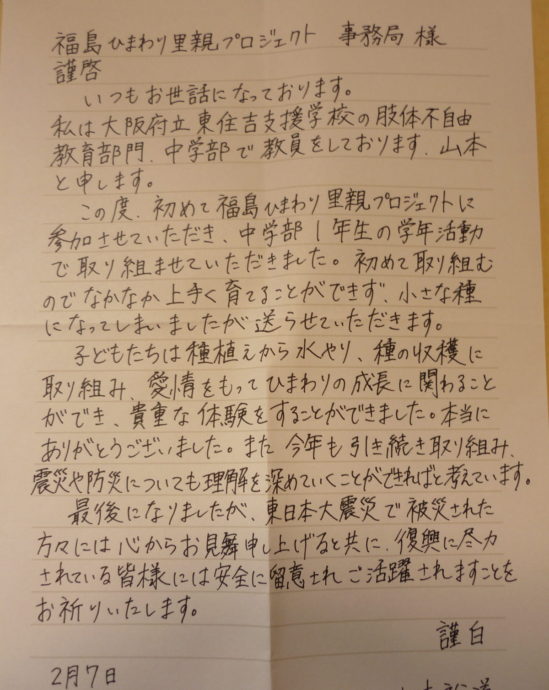 福島ひまわり里親プロジェクト 事務局 様
謹啓
いつもお世話になっております。
私は大阪府立東住吉支援学校の肢体不自由
教育部門、中学部で教員をしております、山本
と申します。
この度、初めて福島ひまわり里親プロジェクトに
参加させていただき、中学部1年生の学年活動
で取り組ませていただきました。初めて取り組む
のでなかなか上手く育てることができず、小さな種
になってしまいましたが送らせていただきます。
子どもたちは種植えから水やり、種の収穫に
取り組み、愛情をもってひまわりの成長に関わること
ができ、貴重な体験をすることができました。本当に
ありがとうございました。また今年も引き続き取り組み、
震災や防災についても理解を深めていくことができればと考えています。
最後になりましたが、東日本大震災で被災された
方々には心からお見舞申し上げると共に、復興に尽力
されている皆様には安全に留意されご活躍されますことを
お祈りいたします。
謹白
2月7日